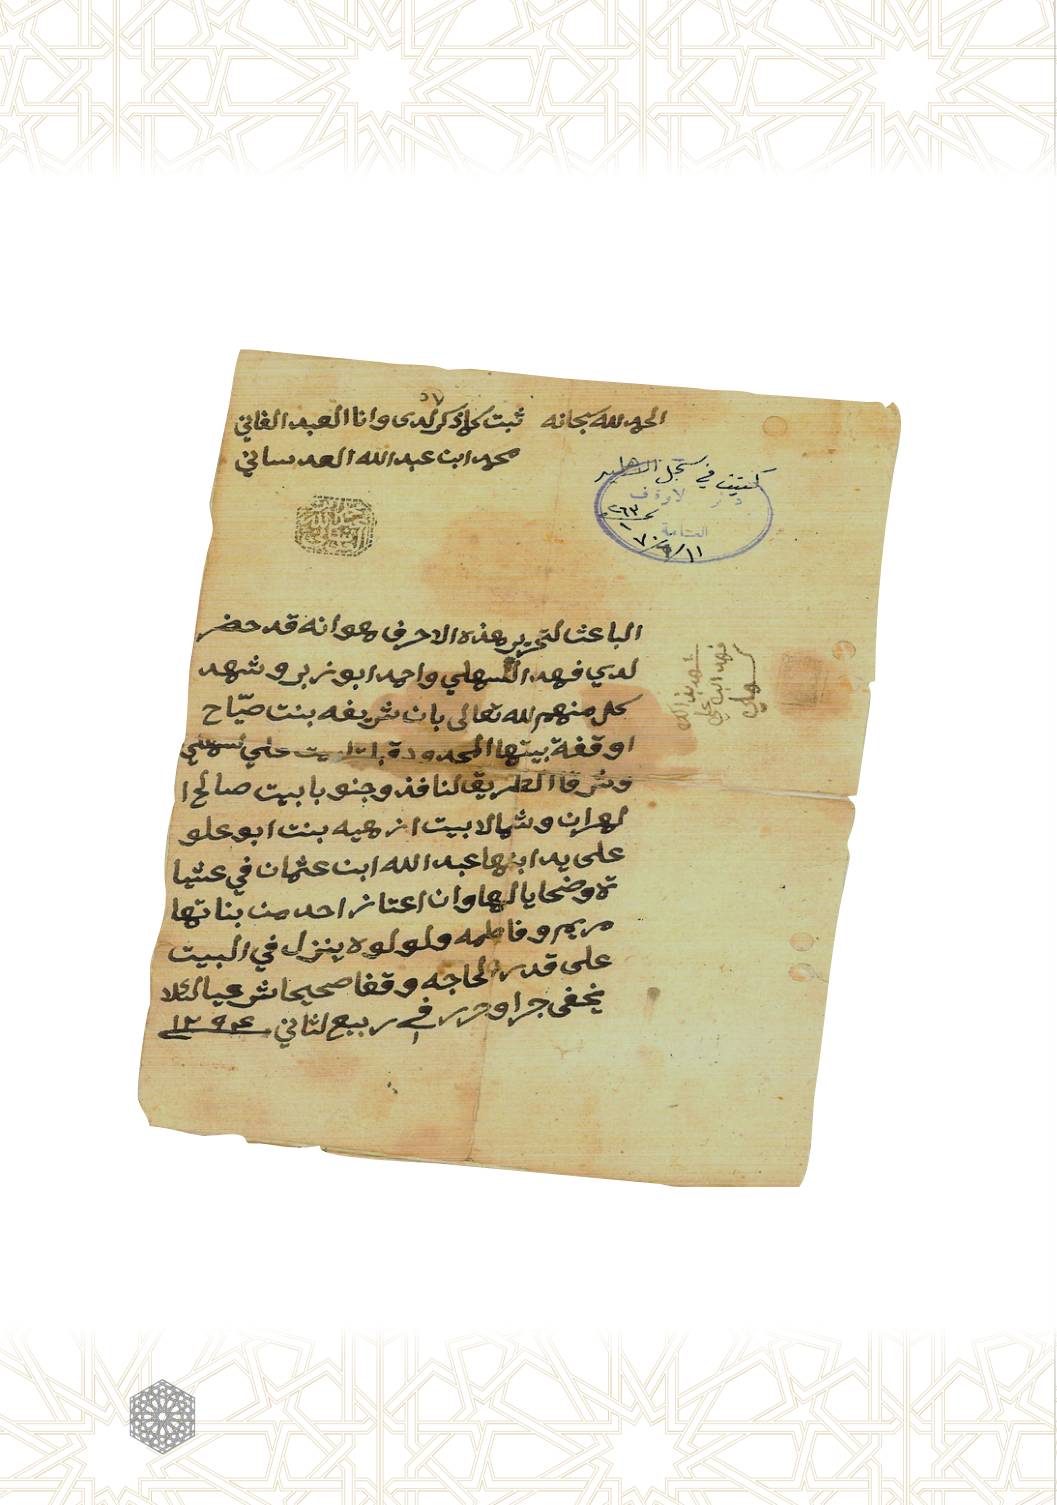 الحمد لله سبحانه
ثبت كلما ذكر لدى وانا العبد الفاني
محمد ابن عبدالله العدساني
كتبت في سجل الاهليه
دائرة الاوقاف
العامة
نمرة ٢٦٣
١١/٩/٧٠
الباعث لتحرير هذه الاحرف هو انه قد حضر
لدي فهد السهلي واحمد ابو زبر وشهد
كل منهم لله تعالى بان شريفه بنت صيّاح
اوقفة بيتها المحدودة قبلتا بيت علي لسهلي
وشرقا الطريق لنافذ وجنوبا بيت صالح ا
لهران وشمالا بيت ازهيه بنت ابو علو
على يد ابنها عبدالله ابن عثمان في عشيا
ة وضحايا لها وان اعتاز احد من بناتها
مريم وفاطمه ولولوه ينزل في البيت
على قدر الحاجه وقفا صحيحا شرعيا لئلا
يخفى جرا وحرر في ١ ربيع لثاني ١٢٩٤
شهد بذالك
فهد البن علي
سهلي